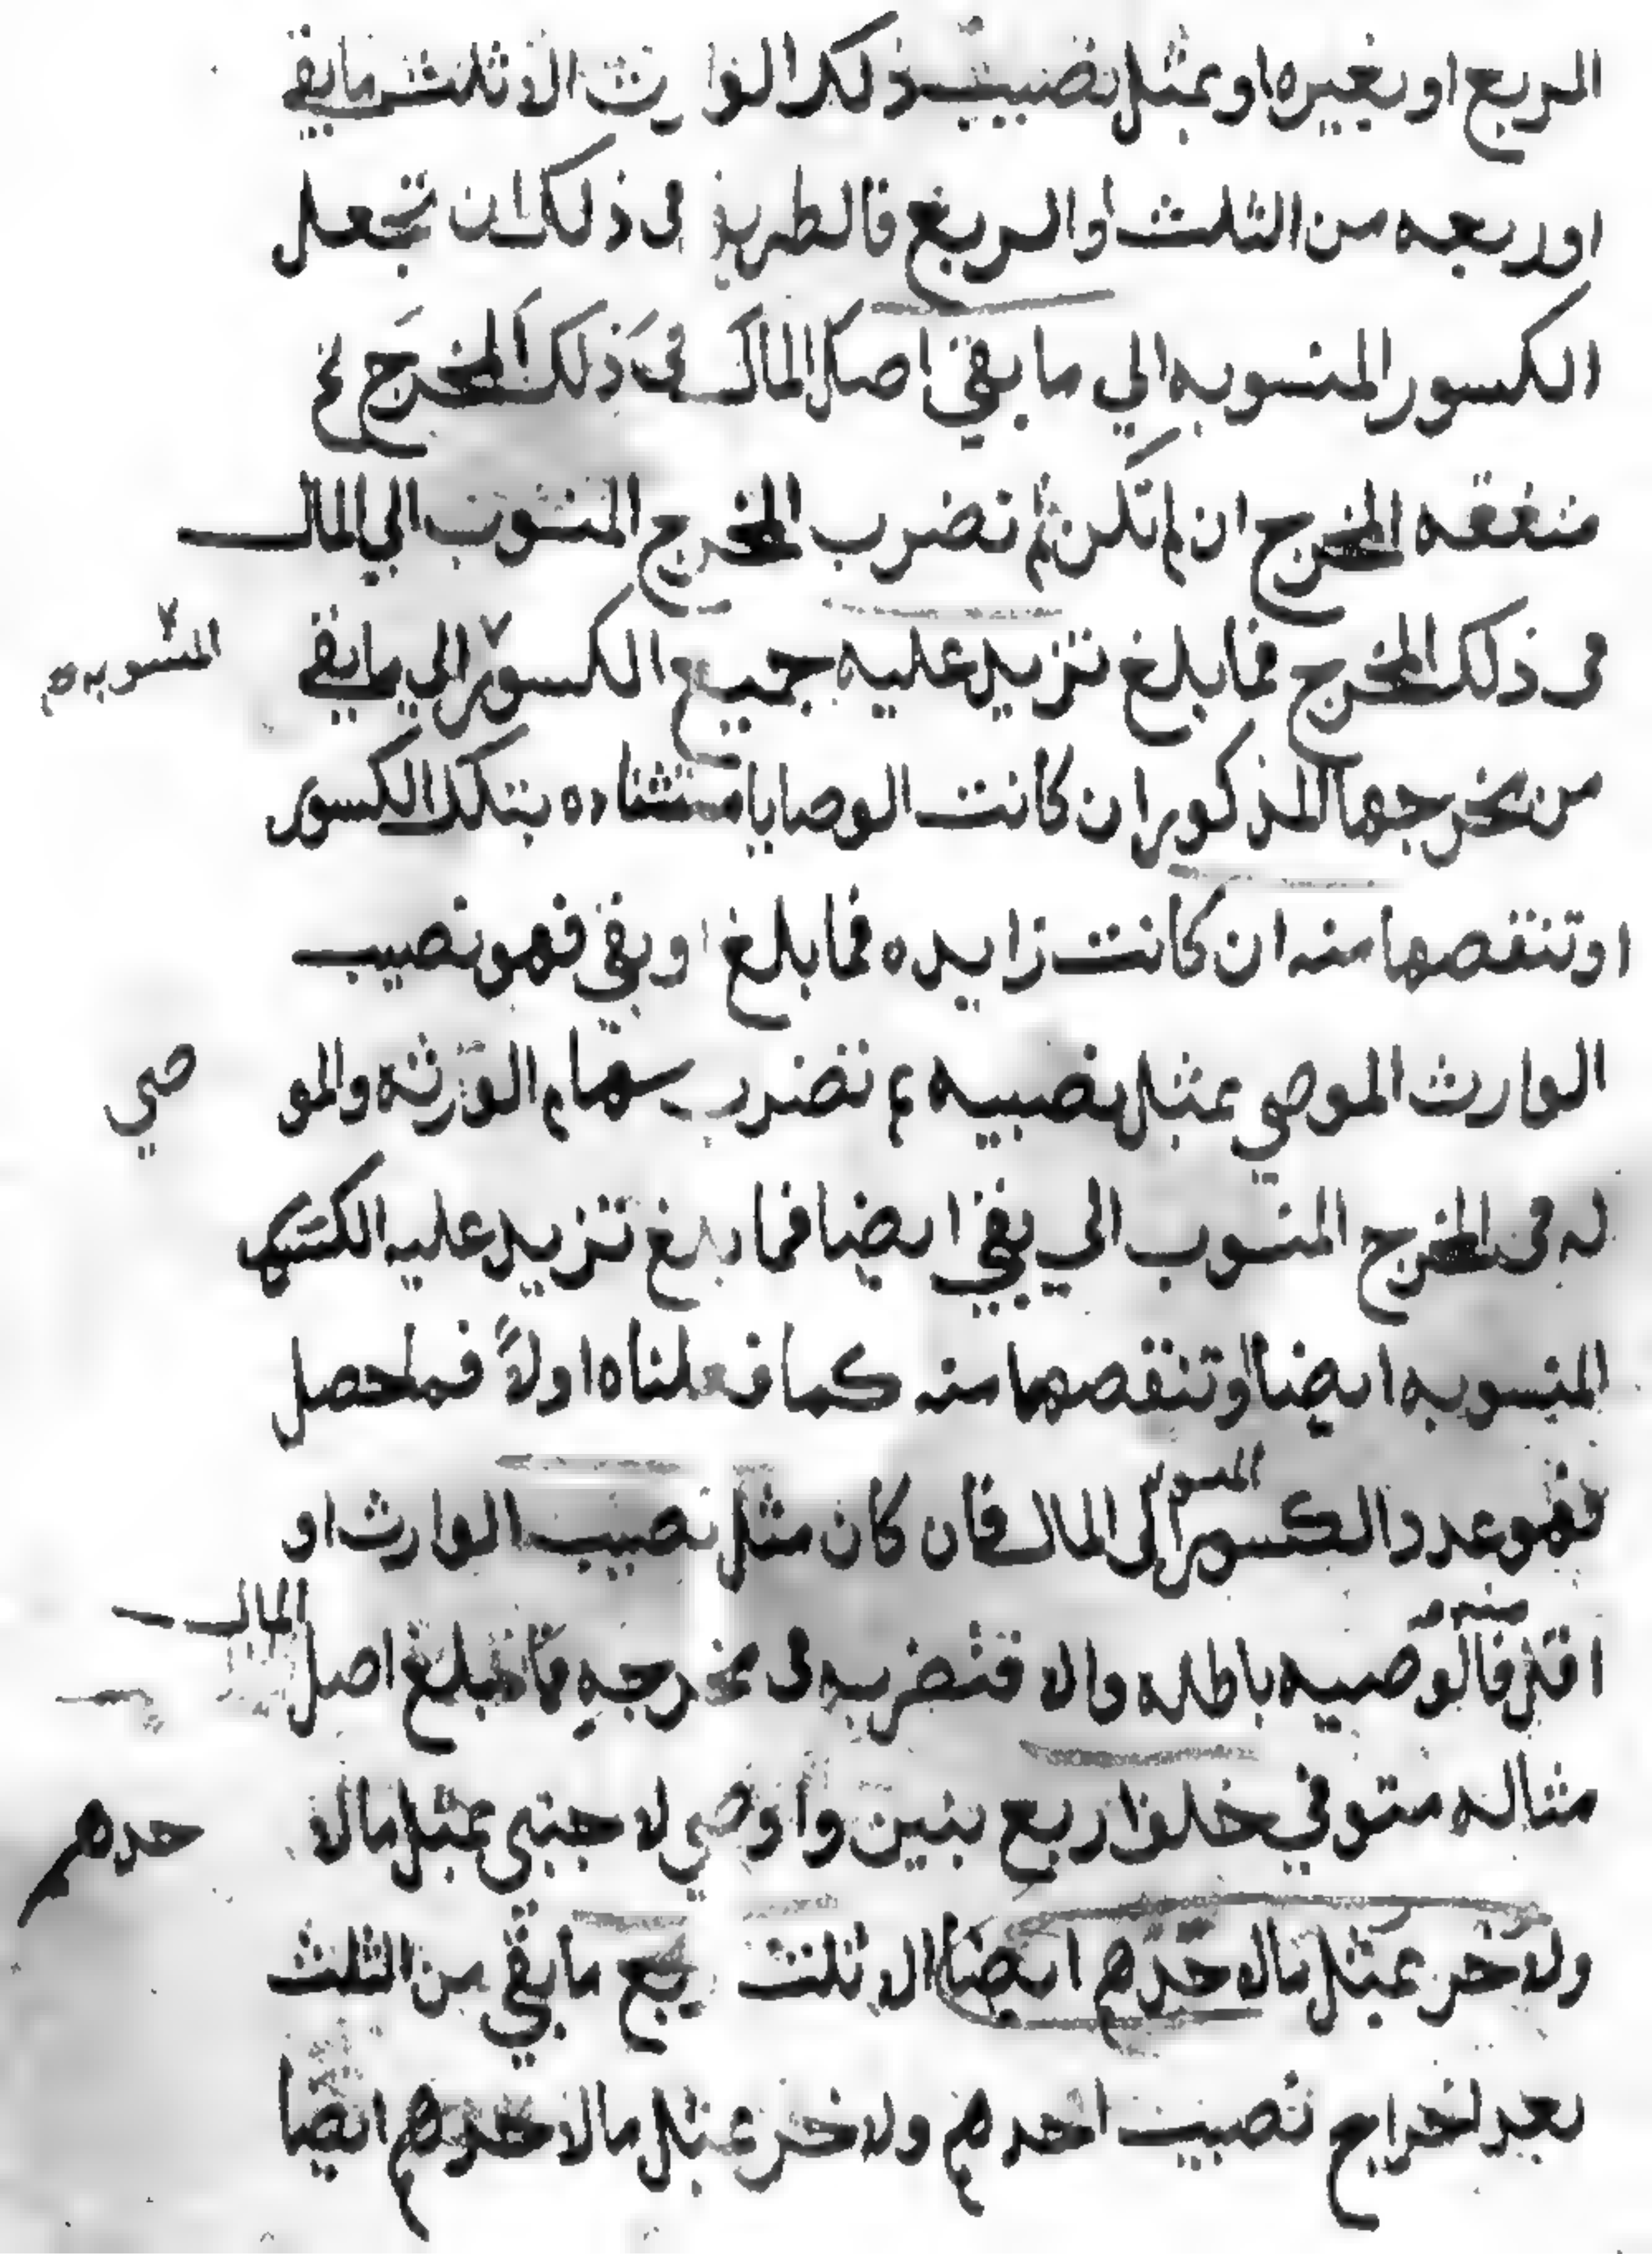 الربع او بغيره او بمثل نصيب ذلك الوارث الا ثلث ما بقي
او ربعه من الثلث او الربع فالطريق في ذلك ان تجعل
الكسور المنسوبه الي ما بقي اصل المال في ذلك المخرج
متفقه المخرج ان لم تكن ثم تضرب المخرج المنسوب الي المال
في ذلك المخرج فما بلغ تزيد عليه جميع الكسور الي ما بقي
المنسوبه صح
من مخرجها المذكور ان كانت الوصايا مستثناه بتلك الكسور
او تنقصها منه ان كانت زايده فما بلغ او بقي فهو نصيب
الوارث الموصي بمثل نصيبه ثم تضرب سهام الورثه والمو
صي
له في المخرج المنسوب الي بقي ايضا فما بلغ تزيد عليه
المنسوبه ايضا او تنقصها منه كما فعلناه اولاً فما حصل
فهو عدد الكسور الى المال فان كان مثل نصيب الوارث او
المنسوبه
اقل فالوصيه باطله والا فتضربه في مخرجه فما بلغ اصل
منه
المال
مثاله متوفي خلف اربع بنين واوصي لاجنبى بمثل مالا
حدهم
ولاخر بمثل مالاحدهم ايضا الا ثلث ربع ما بقي من الثلث
بعد اخراج نصيب احدهم ولاخر بمثل مالاحدهم ايضا